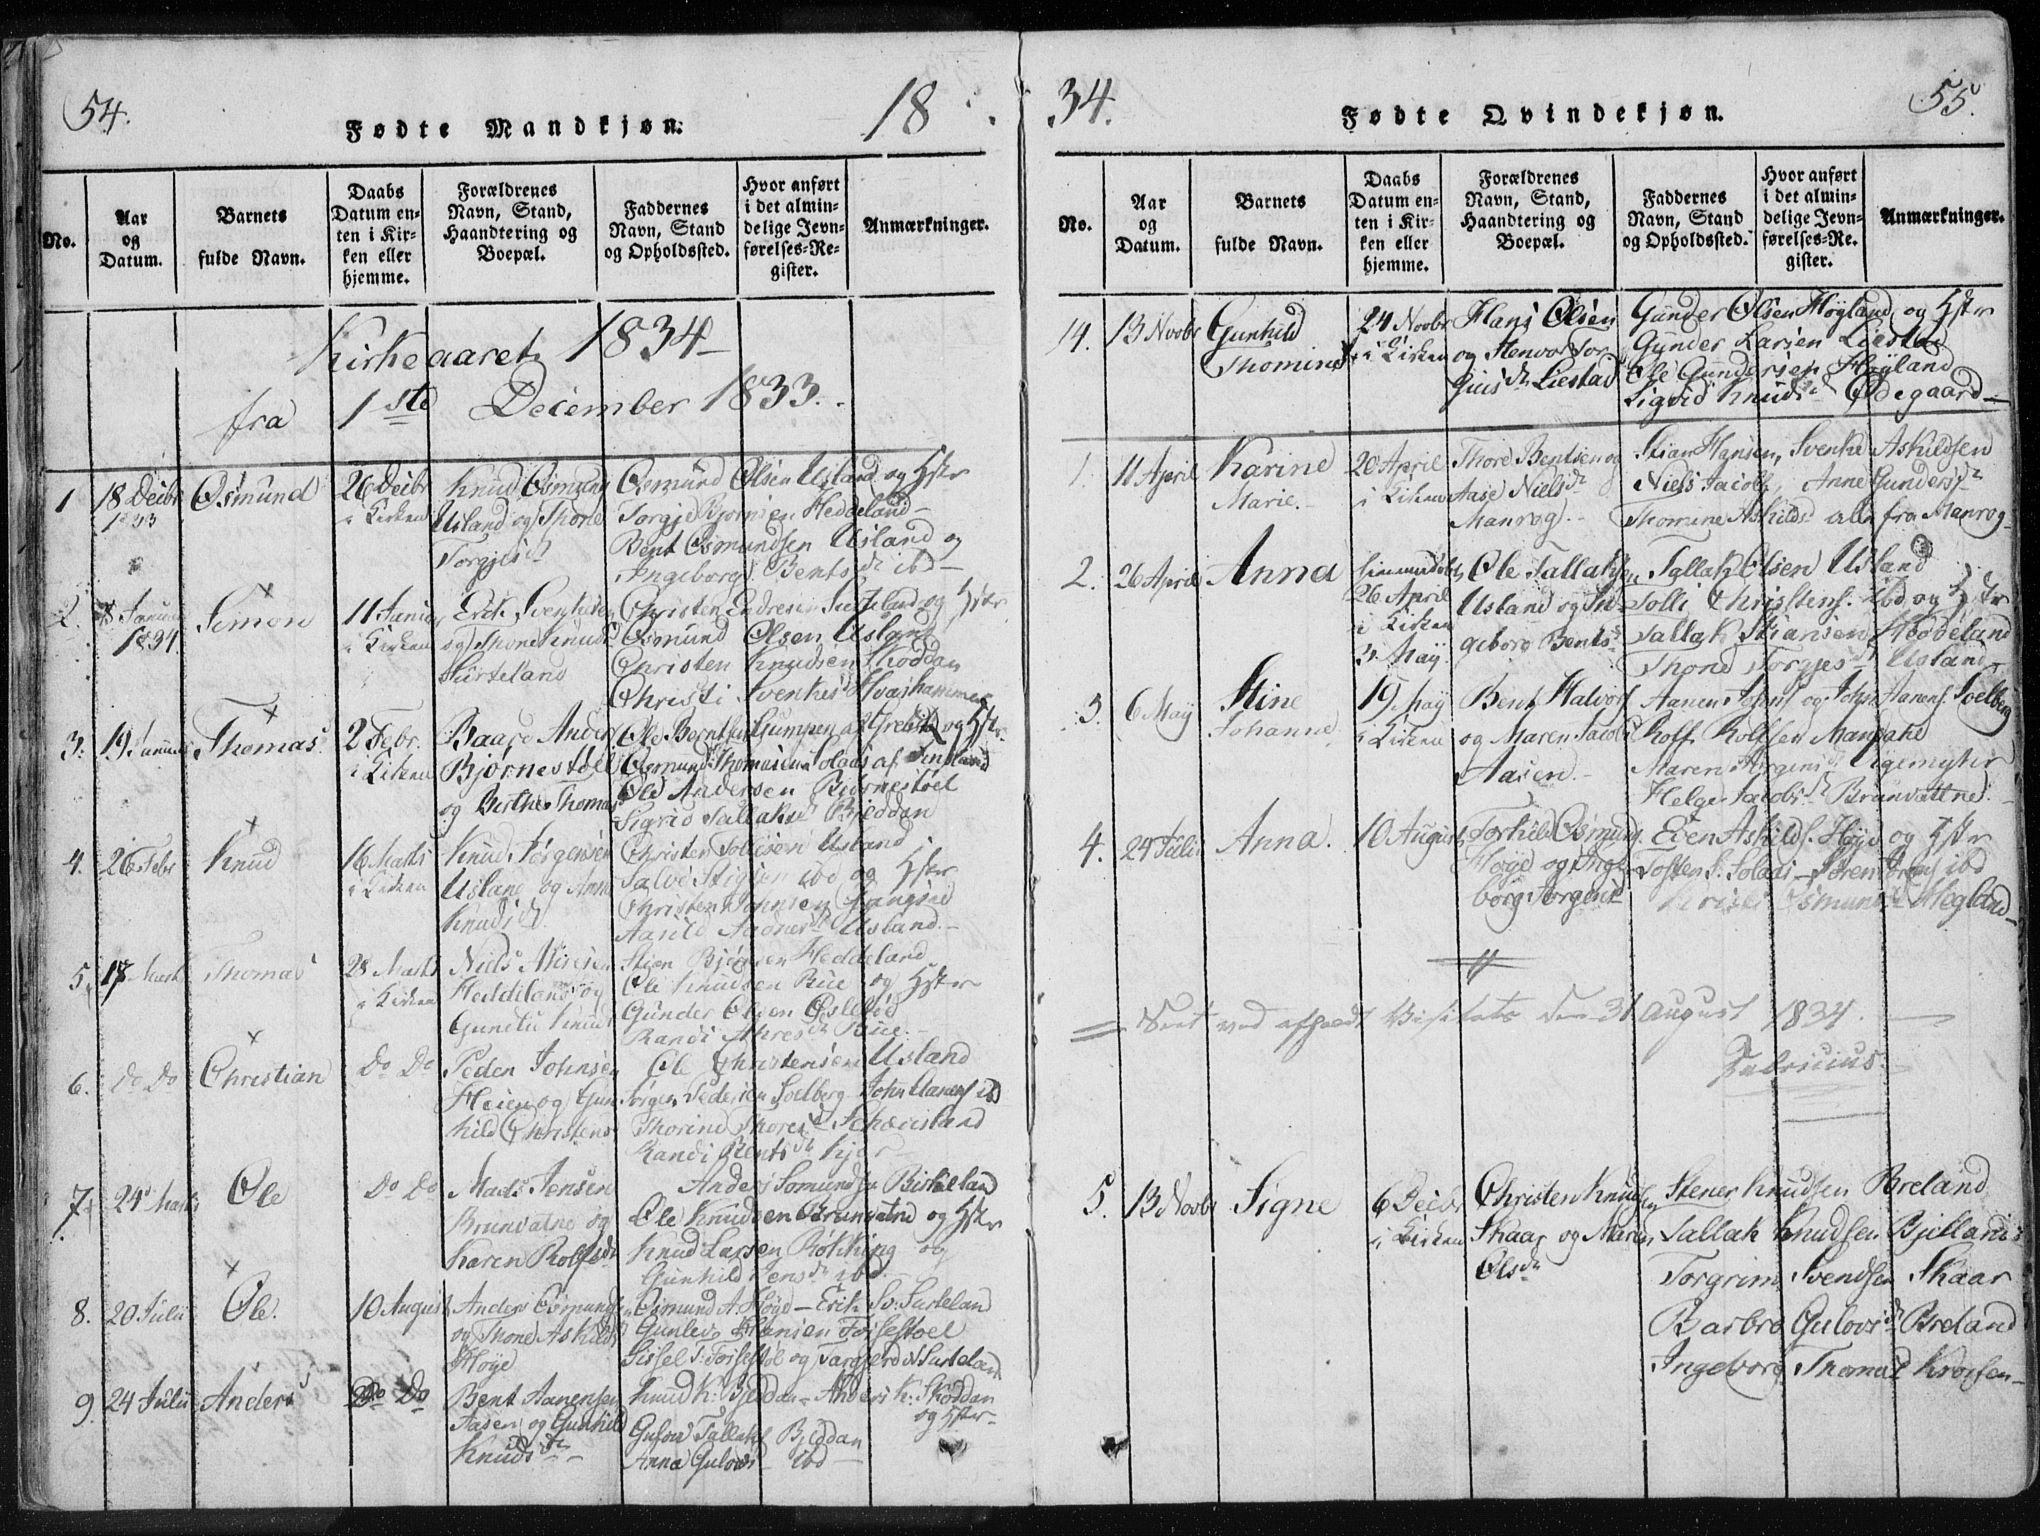 54.
Fødte Mandkjøn.
18
No.
Aar og Datum.
Barnets fulde Navn.
Daabs Datum enten i Kirken eller hjemme.
Forældrenes Navn, Stand, Haandtering og Boepæl.
Faddernes Navn, Stand og Opholdssted.
Hvor anført i det almindelige Jevnførelses-Register.
Anmærkninger.
Kirkeaaret 1834
fra 1ste December 1833.
1 18 Decbr 1833
Osmund
26 Decbr i Kirken
Knud Osmunds
Usland og Thone
Torgjesd
Osmund Olsen Usland og Hstr
Torgje Bjornsen Heddeland
Bent Osmundsen Usland og
Ingeborg Bentsdr ibd
2.
8 Januar 1834
Simon
11 Januar i Kirken
Erik
og Thone Knudsd
Surteland
Christen Endresen Surteland og Hstr
Osmund Olsen Usland
Christen Knudsen Skoddan
Christi Svenkesd
3. 19 Januar
Thomas
2 Febr. i Kirken
Baard Anders
Bjørnestøl
og Berthe Thomas
Ole Berntsen Gumpen af og Hstr
Osmund Thomassen Solaas af Finsland
Ole Andersen Bjørnestøel
Sigrid Tallaksd Bjeddan
4. 26 Febr
Knud
16 Marts i Kirken
Knud Jørgensen
Usland og Anne
Knudsd
Christen Tollisen Usland
Salve Stiesen ibd og Hstr
Christen Johnsen
Aasild Usland.
5. 17 Marts
Thomas
28 Marts i Kirken
Niels
Heddeland og
Gunelu Knuds
Stien Bjørnsen Heddeland
Ole Knudsen Rue og Hstr
Gunder Olsen
Randi Rue.
6. Do Do
Christian
Do Do
Peder Johnsen
Heien og Gun
hild Christens
Ole Christensen Usland
Jørgen Pedersen Soelberg John Aanens ibd
Thorine Thoresd
Randi Bentsdr Kjær
7. 24 Marts
Ole
Do Do
Mads Jensen
Brunvatne og
Karen Rolfsdr
Anders Somundsen Birkeland
Ole Knudsen Brunvatne og Hstr
Knud Larsen Røkking og
Gunhild Jensdr ibd.
8. 20 Julii
Ole.
10 August
Anders Osmundsen
og Thone Askildsd
Høye
Osmund A. Høye – Erik Sv: Surteland
Gunlev Hansen Fossestoel
Sissel S: Fossestøl og Surteland
9. 24 Julii
Anders
Do Do
Bent Aanensen
Aasen og Gunhild
Knudsdr
Knud K: Bjeddan – Anders K: Skoddan
og Hstr
Gulov Tallaks Bjeddan
Anna Gulovs ibd
34.
Fødte Qvindekjøn.
55.
No.
Aar og Datum.
Barnets fulde Navn.
Daabs Datum enten i Kirken eller hjemme.
Forældrenes Navn, Stand, Haandtering og Boepæl.
Faddernes Navn, Stand og Opholdssted.
Hvor anført i det almindelige Jevnførelses-Re. gister.
Anmærkninger.
14. 13 Novbr
Gunhild
Thomine
24 Novbr i Kirken
Hans Olsen
og Tor
gius dr Liestad
Gunder Olsen Høyland og Hstr
Gunder Larsen Liestad
Ole Gundersen Høyland
Sigrid Knudsd Ødegaard
1. 11 April
Karine
Marie.
20 April i Kirken
Thore Bentsen og
Aase Nielsdr
Manrog.
Stian Hansen, Svenke Askildsen
Niels Jacobs, Anne Gundersdr
Thomine Askildsd alle fra Manrog
2. 26 April
Anna
hjemmedøbt
26 April
i Kirken
3 May
Ole Tallaksen
Usland og In
geborg Bentsd
Tallak Olsen Usland
Tolli Christens. ibd og Hstr
Tallak Stiansen Heddeland
Thone Torgjesd Usland
3. 6 May
Stine
Johanne
19 May i Kirken
Bent Halvors
og Maren Jacobsd
Aasen.
Aanen Johns og John Aanens. Soelberg
Rolf Rolfsen
Maren Jørgensd Ugemyhr
Helge Jacobsdr Brunvattne.
4. 24 Julii
Anna.
10 August
Torkild Osmunds.
Høye og Inge
borg Jørgensd
Even Askilds. Høye og Hstr
Tosten S: Solaas – ibd
Osmundsd Hegland
Seet ved afholdt Visitats den 31 August 1834.
Fabricius.
5. 13 Novbr
Signe
6 Decbr i Kirken
Christen Knudsen
Skaar og Maren
Olsdr
Stener Knudsen Breland
Tallak Knudsen Bjelland
Torgrim Svendsen Skaar
Barbro Gulovsdr Breland
Ingeborg Thomasd